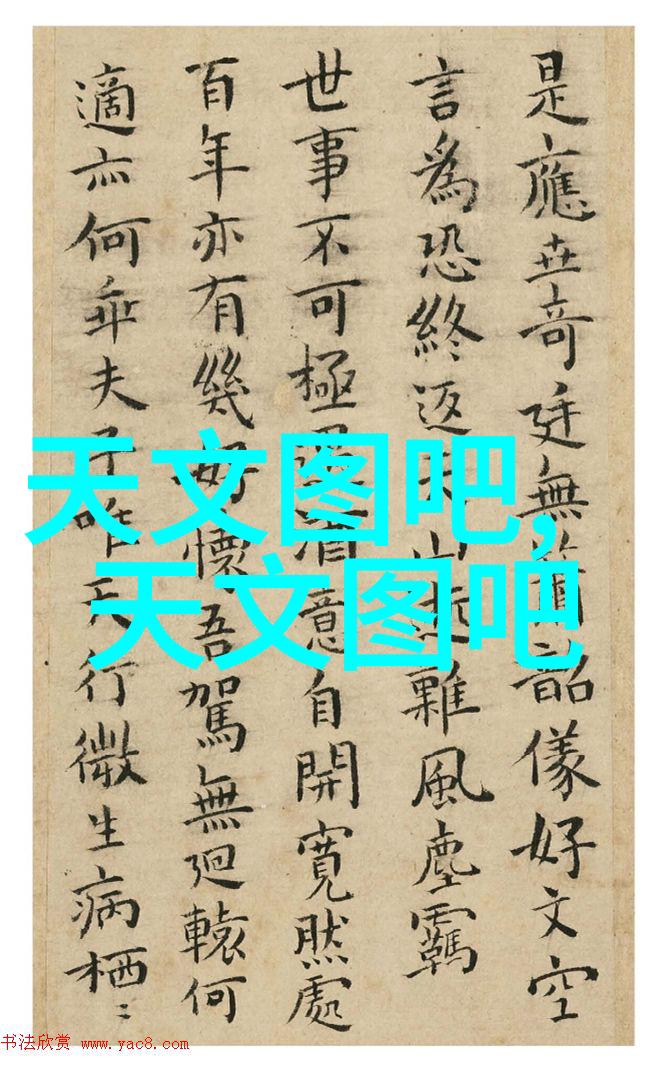 是應世奇廷無韶儀好文空
言為恐終返難風塵羈
世事不可極酒意自開寬然處
百年亦有幾好懷吾駕無廻轅何
適亦何乖夫子唯天行微生病栖〻
天文图吧,
天文图吧
书法欣赏 www.yac8.com